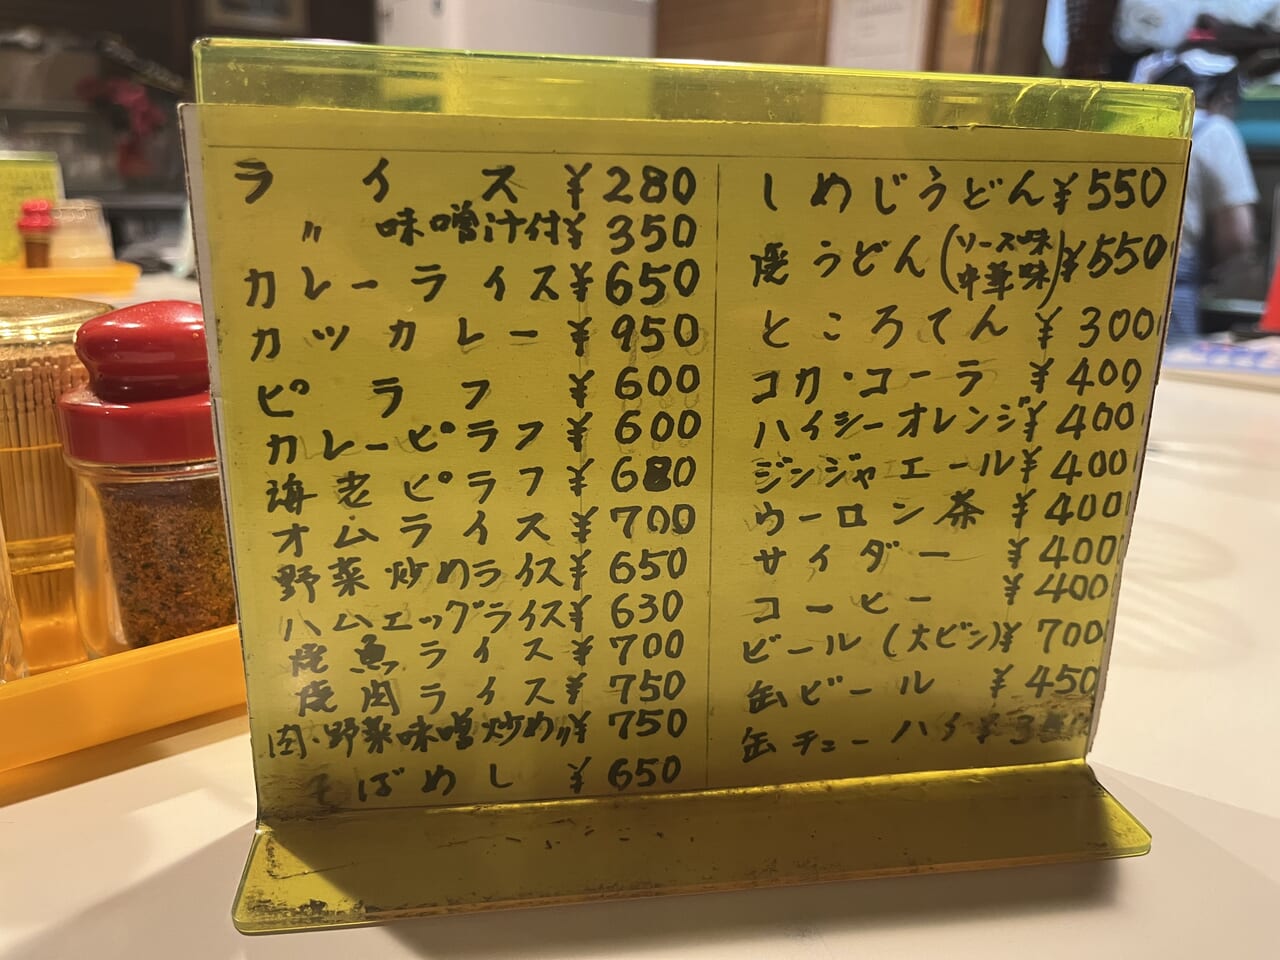 ライス ¥280
〃 味噌汁付 ¥350
カレーライス ¥650
カツカレー ¥950
ピラフ ¥600
カレーピラフ ¥600
海老ピラフ ¥680
オムライス ¥700
野菜炒めライス ¥650
ハムエッグライス ¥630
焼魚ライス ¥700
焼肉ライス ¥750
肉・野菜味噌炒め〃 ¥750
そばめし ¥650
しめじうどん ¥550
焼うどん(ソース味 中華味) ¥550
ところてん ¥300
コカ・コーラ ¥400
ハイシーオレンジ ¥400
ジンジャエール ¥400
ウーロン茶 ¥400
サイダー ¥400
コーヒー ¥400
ビール(大ビン) ¥700
缶ビール ¥450
缶チューハイ ¥